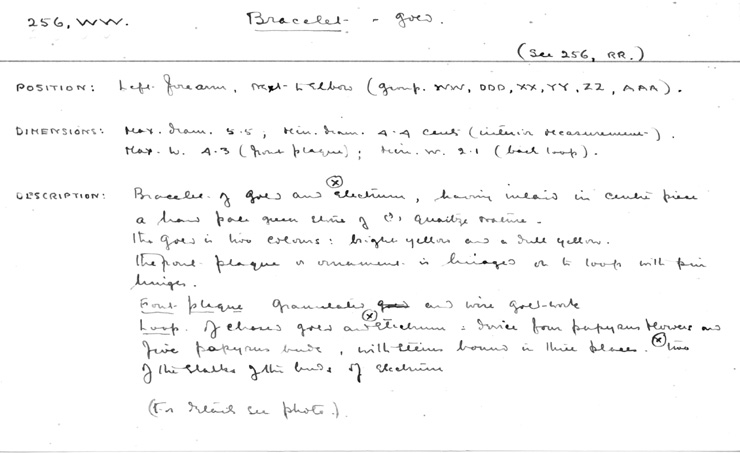 256, WW. Bracelet - gold.
(See 256, RR.)
POSITION: Left forearm, next to Elbow (group. WW, DDD, XX, YY, ZZ, AAA).
DIMENSIONS: Max. diam. 5.5; Min. diam. 4.4 cents (interior measurement).
Max. W. 4.3 (front plaque); Min. W. 2.1 (back loop).
DESCRIPTION: Bracelet of gold and ⊗ electrum, having inlaid in centre piece
a hard pale green stone of (?) quartze nature.
The gold is two colours: bright yellow and a dull yellow.
The front plaque or ornament is hinged on to loop with pin
hinges.
Front plaque granulated and wire gold-work
Loop. Of chased gold and ⊗ electrum: device four papyrus flowers and
five papyrus buds, with stems bound in three places. ⊗ two
of the stalks of the buds of electrum
(For details see photo.).